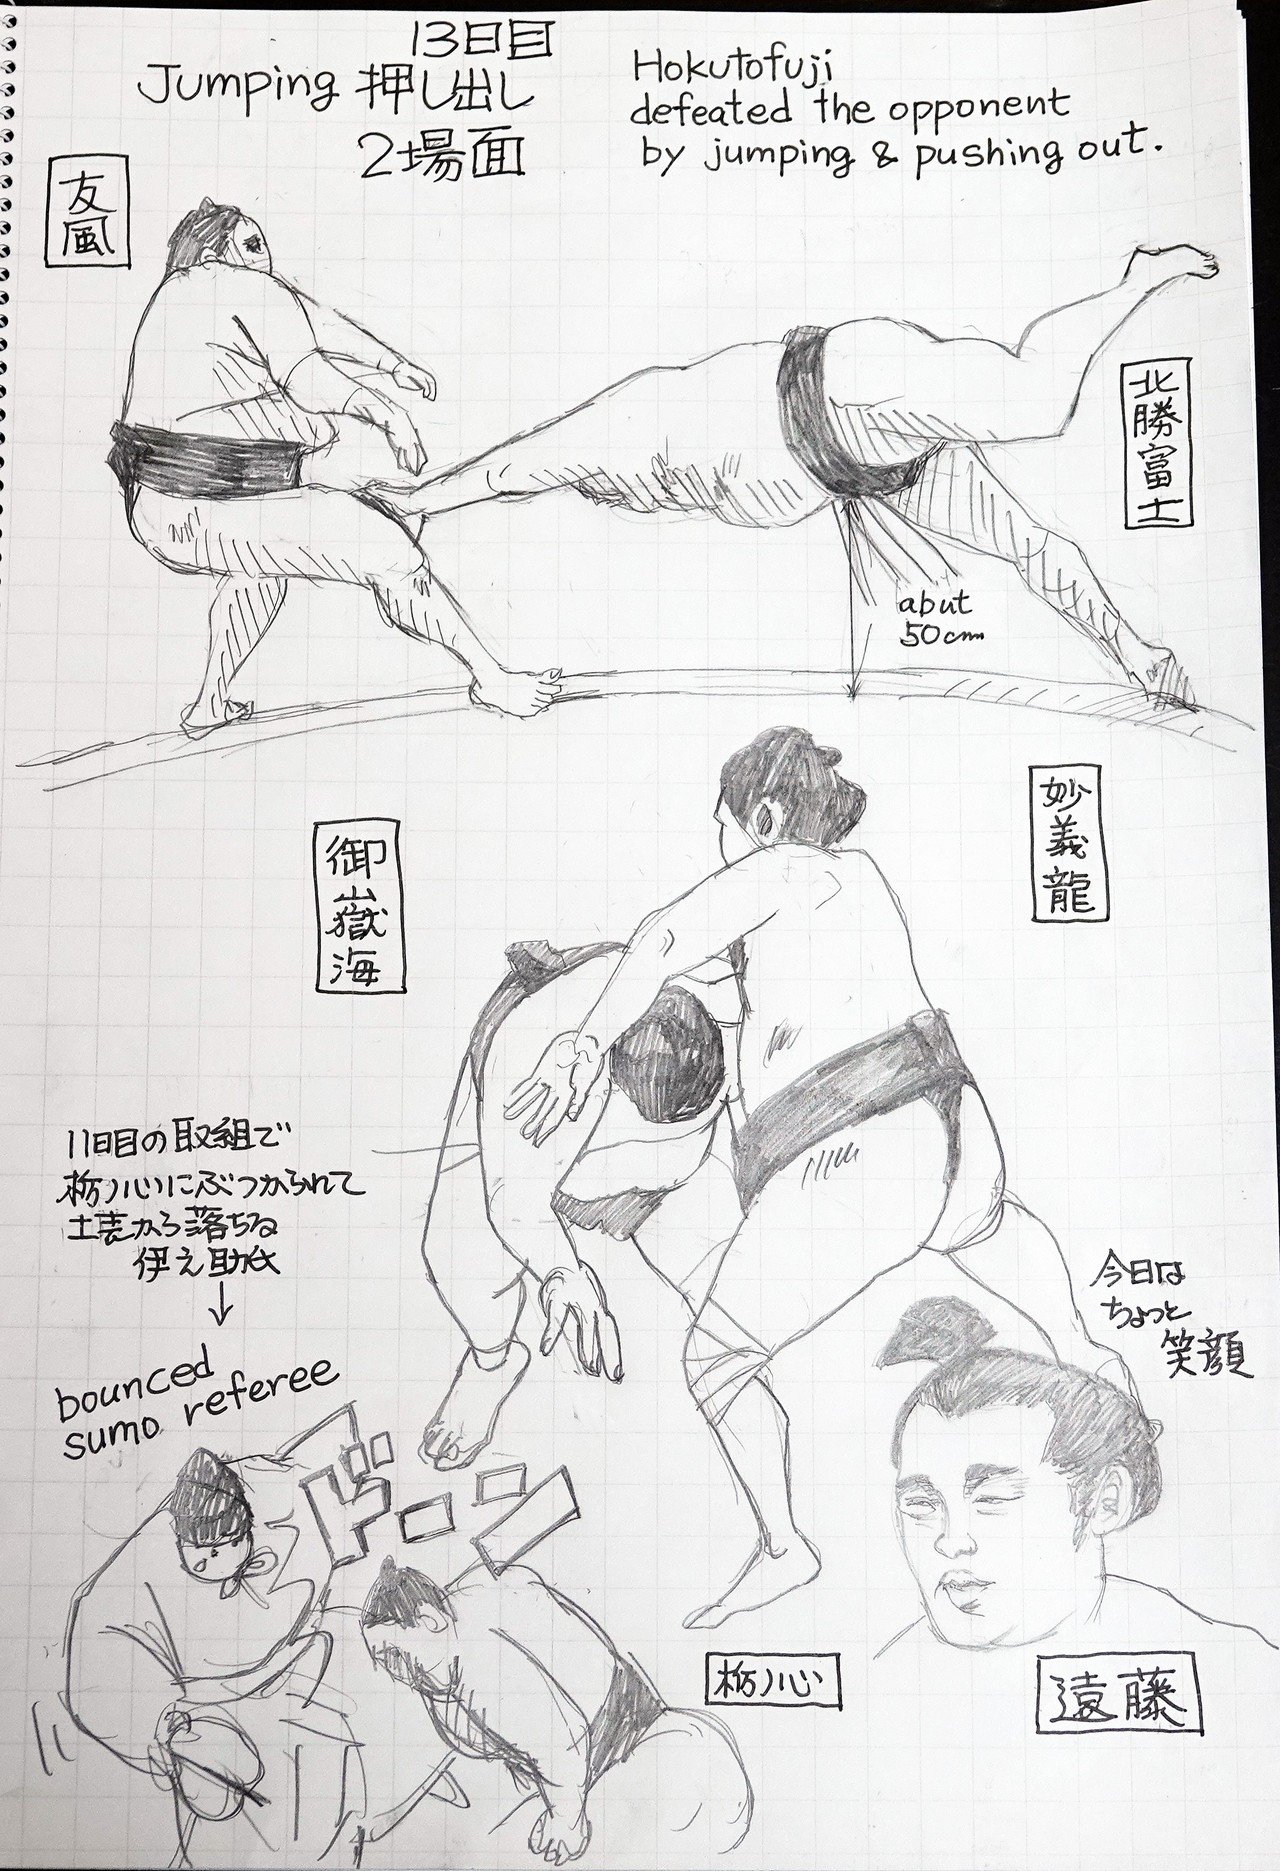 13日目
Jumping 押し出し
2場面
Hokutofuji
defeated the opponent
by jumping & pushing out.
友風
北勝富士
abut
50cm
妙義龍
御嶽海
11日目の取組で
栃ノ心にぶつかられて
土表から落ちる
伊之助氏
↓
bounced
sumo referee
ドーン
今日は
ちょっと
笑顔
栃ノ心
遠藤